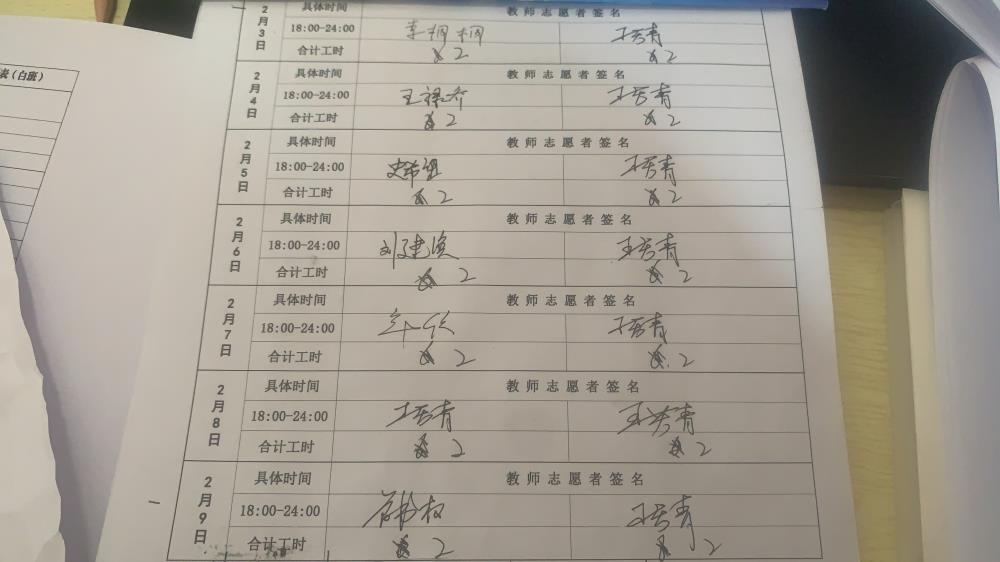 表（白班）
2月3日
具体时间 教师志愿者签名
18:00-24:00 李桐桐 王芳青
合计工时 2 2
2月4日
具体时间 教师志愿者签名
18:00-24:00 王芳青
合计工时 2 2
2月5日
具体时间 教师志愿者签名
18:00-24:00 王芳青
合计工时 2 2
2月6日
具体时间 教师志愿者签名
18:00-24:00 刘建滨 王芳青
合计工时 2 2
2月7日
具体时间 教师志愿者签名
18:00-24:00 王芳青
合计工时 2 2
2月8日
具体时间 教师志愿者签名
18:00-24:00 王芳青 王芳青
合计工时 2 2
2月9日
具体时间 教师志愿者签名
18:00-24:00 王芳青
合计工时 2 2